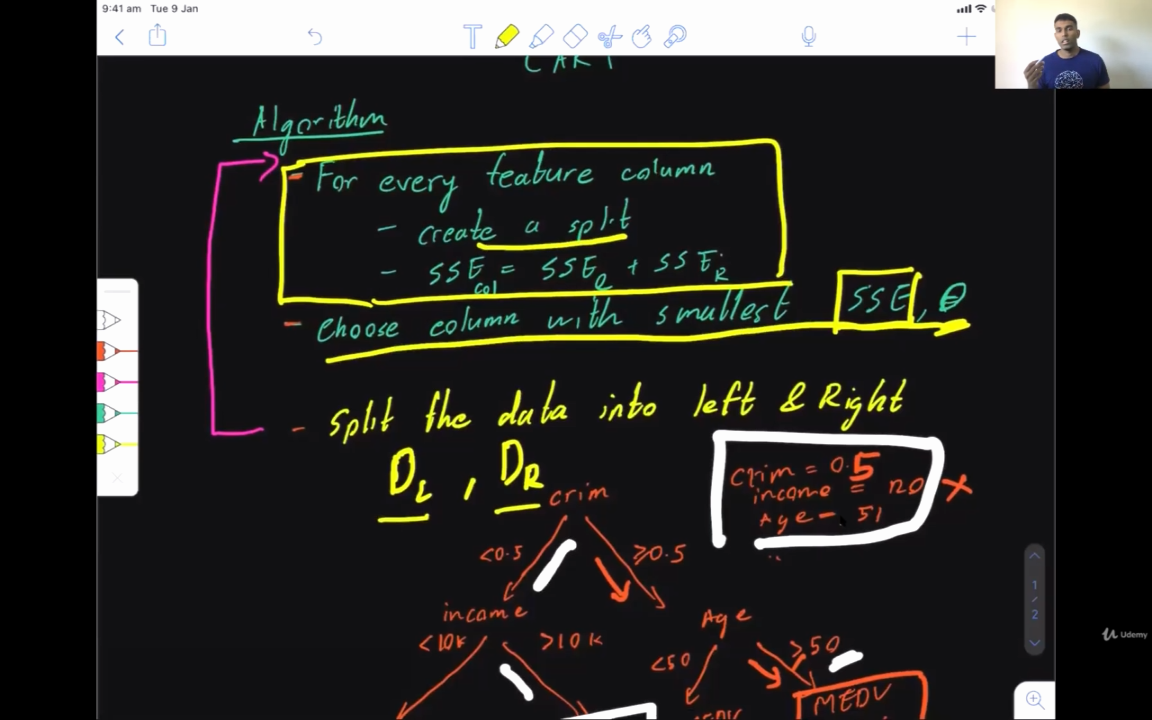 9:41 am Tue 9 Jan
CART
Algorithm
- For every feature column
- create a split
- SSE col = SSE L + SSE R
- choose column with smallest SSE, θ
- split the data into left & Right
D L , D R
crim = 0.5
income = no
Age - 51
crim
<0.5
≥0.5
income
Age
<10K
>10K
<50
≥50
MEDV
MEDV
1
/
2
Udemy